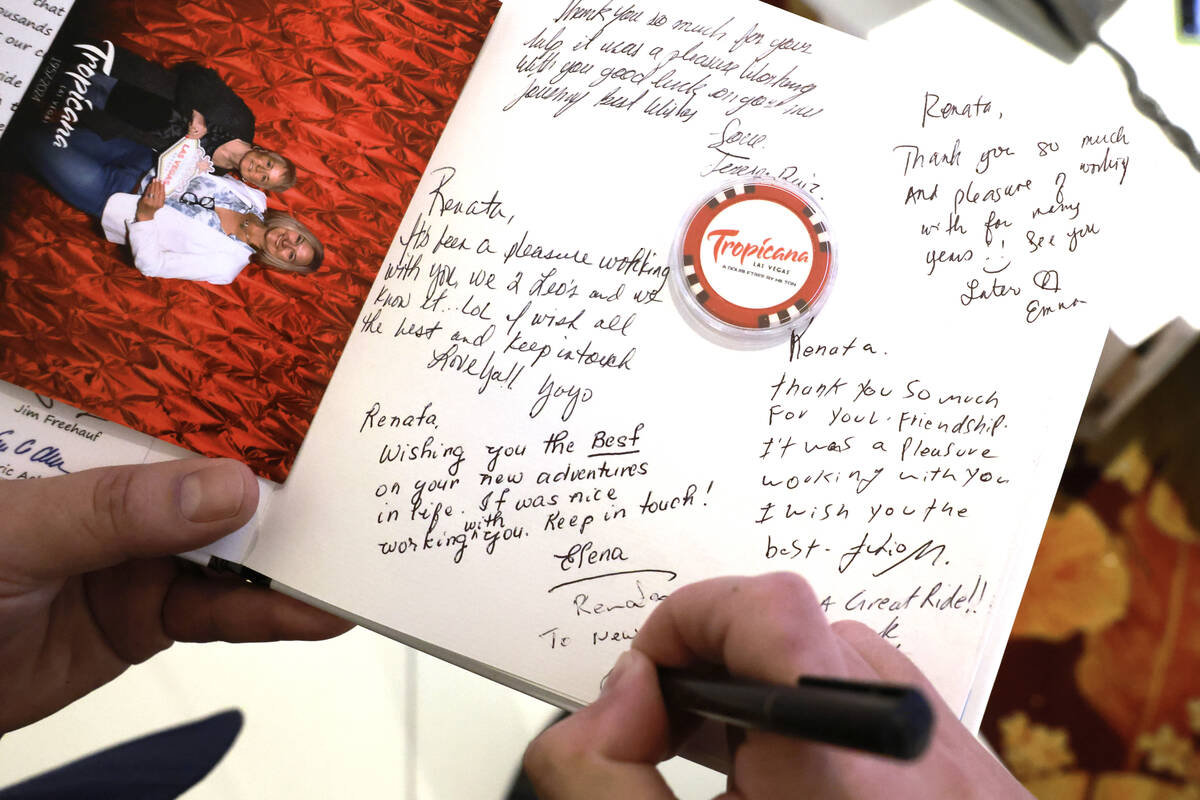 that
thousands
our c
ride
Tropicana
LAS VEGAS
1957-2024
LAS VEGAS
Jim Freehauf
ric
Thank you so much for your
help it was a pleasure working
with you good luck on your new
journey best wishes
Teresa Ruiz
Renata,
It's been a pleasure working
with you, we 2 Leo's and we
know it... Lol I wish all
the best and keep in touch
Love Yall Yoyo
Renata,
Wishing you the Best
on your new adventures
in life. It was nice
working with you. Keep in touch!
Elena
Renata
To New
Tropicana
LAS VEGAS
A DOUBLETREE BY HILTON
Renata,
Thank you so much
And pleasure of working
with for many
years!! See you
Later
Emma
Renata.
thank you so much
For your. Friendship.
It was a pleasure
working with you
I wish you the
best - Julio M.
A Great Ride!!